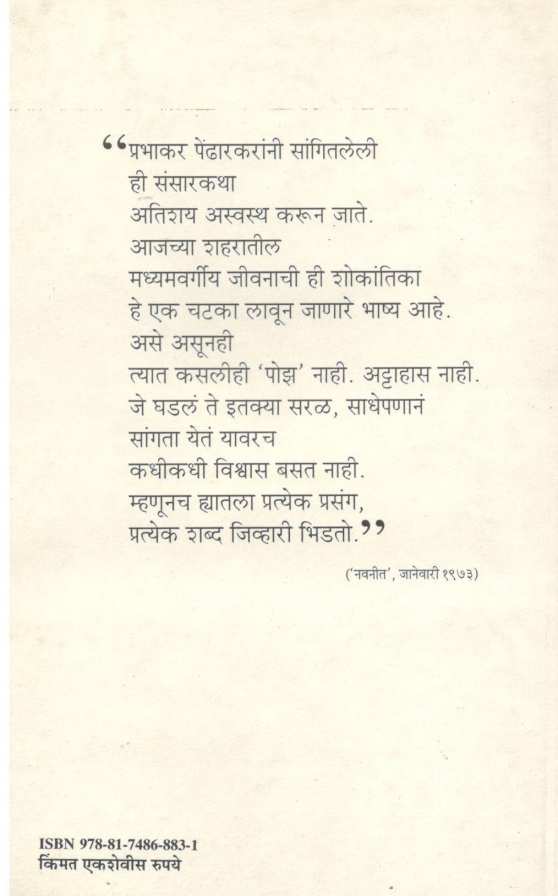 “प्रभाकर पेंढारकरांनी सांगितलेली
ही संसारकथा
अतिशय अस्वस्थ करून जाते.
आजच्या शहरातील
मध्यमवर्गीय जीवनाची ही शोकांतिका
हे एक चटका लावून जाणारे भाष्य आहे.
असे असूनही
त्यात कसलीही ‘पोझ’ नाही. अट्टाहास नाही.
जे घडलं ते इतक्या सरळ, साधेपणानं
सांगता येतं यावरच
कधीकधी विश्वास बसत नाही.
म्हणूनच ह्यातला प्रत्येक प्रसंग,
प्रत्येक शब्द जिव्हारी भिडतो.”
(‘नवनीत’, जानेवारी १९७३)
ISBN 978-81-7486-883-1
किंमत एकशेवीस रुपये